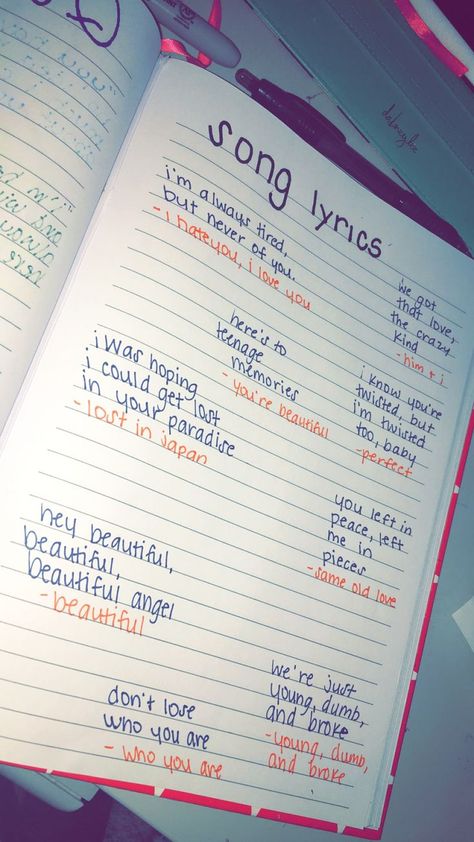 song lyrics
i'm always tired,
but never of you.
- i hate you, i love you
we got
that love,
the crazy
kind
- him + i
here's to
teenage
memories
- you're beautiful
i was hoping
i could get lost
in your paradise
- lost in japan
i know you're
twisted, but
i'm twisted
too, baby
- perfect
you left in
peace, left
me in
pieces
- same old love
hey beautiful,
beautiful,
beautiful angel
- beautiful
we're just
young, dumb,
and broke
- young, dumb,
and broke
don't lose
who you are
- who you are